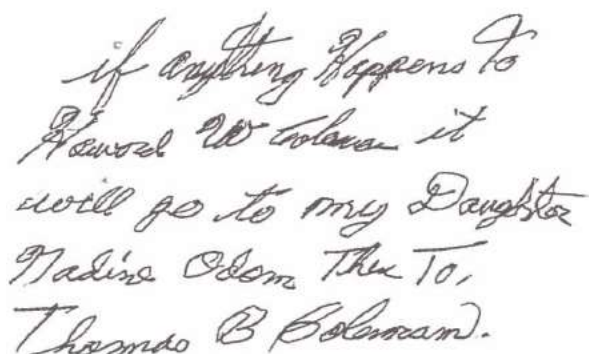 if anything Happens to
Howard W Coleman it
will go to my Daughter
Nadine Odom Then To,
Thomas B Coleman.